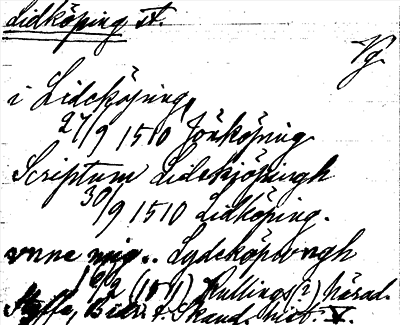 Lidköping st.
Vg.
i Lidcköping,
27/9 1510 Jönköping
Scriptum Lidekjöpingh
30/9 1510 Lidköping.
vnne mig.. Lydeköpungh
(1511) Kullings(?) härad.
Styffe, Bidr. t. Skand. hist. V.